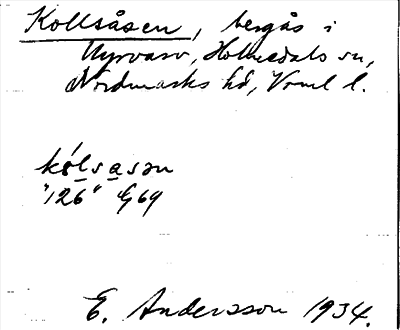 Kollsåsen, bergås i
Nyrvarv, Holmedals sn,
Nordmarks hd, Vrml l.
kólsasan
"126" G69
E. Andersson 1934.